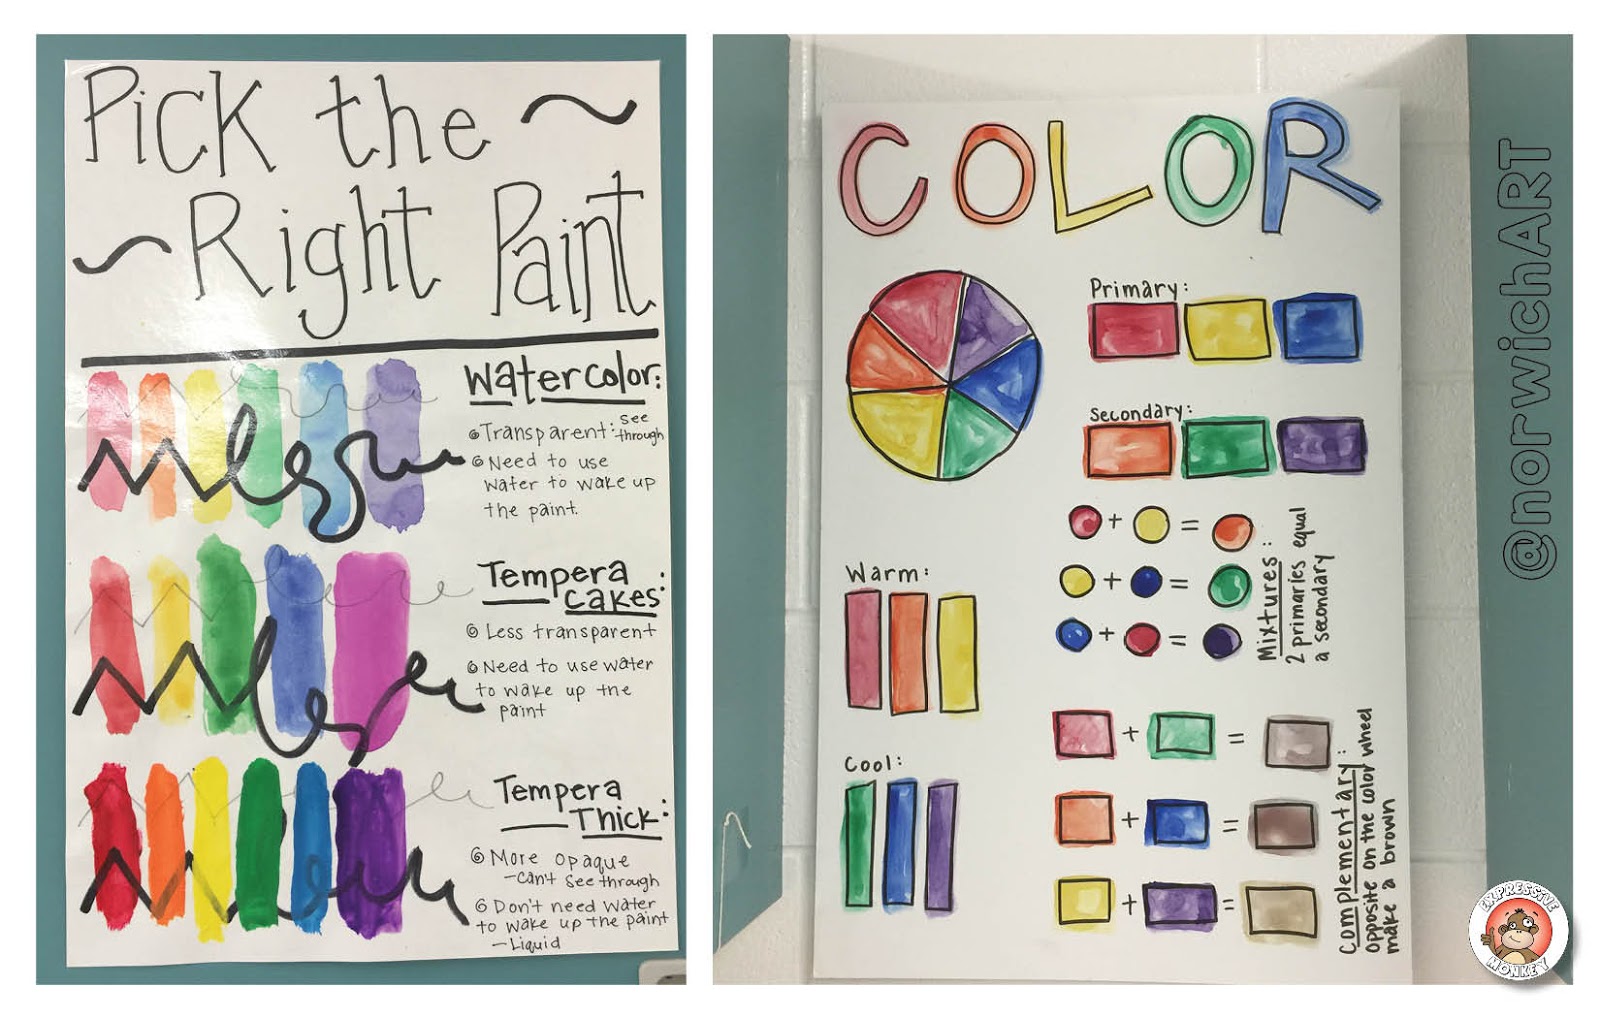 Pick the
Right Paint
Watercolor:
Transparent: see through
Need to use
water to wake up
the paint.
Tempera
Cakes:
Less transparent
Need to use water
to wake up the
paint
Tempera
Thick:
More opaque
-can't see through
Don't need water
to wake up the paint
-Liquid
COLOR
Primary:
Secondary:
+ =
+ =
+ =
Mixtures:
2 primaries equal
a secondary
Warm:
Cool:
+ =
+ =
+ =
Complementary:
opposite on the color wheel
make a brown
@norwichART
EXPRESSIVE
MONKEY